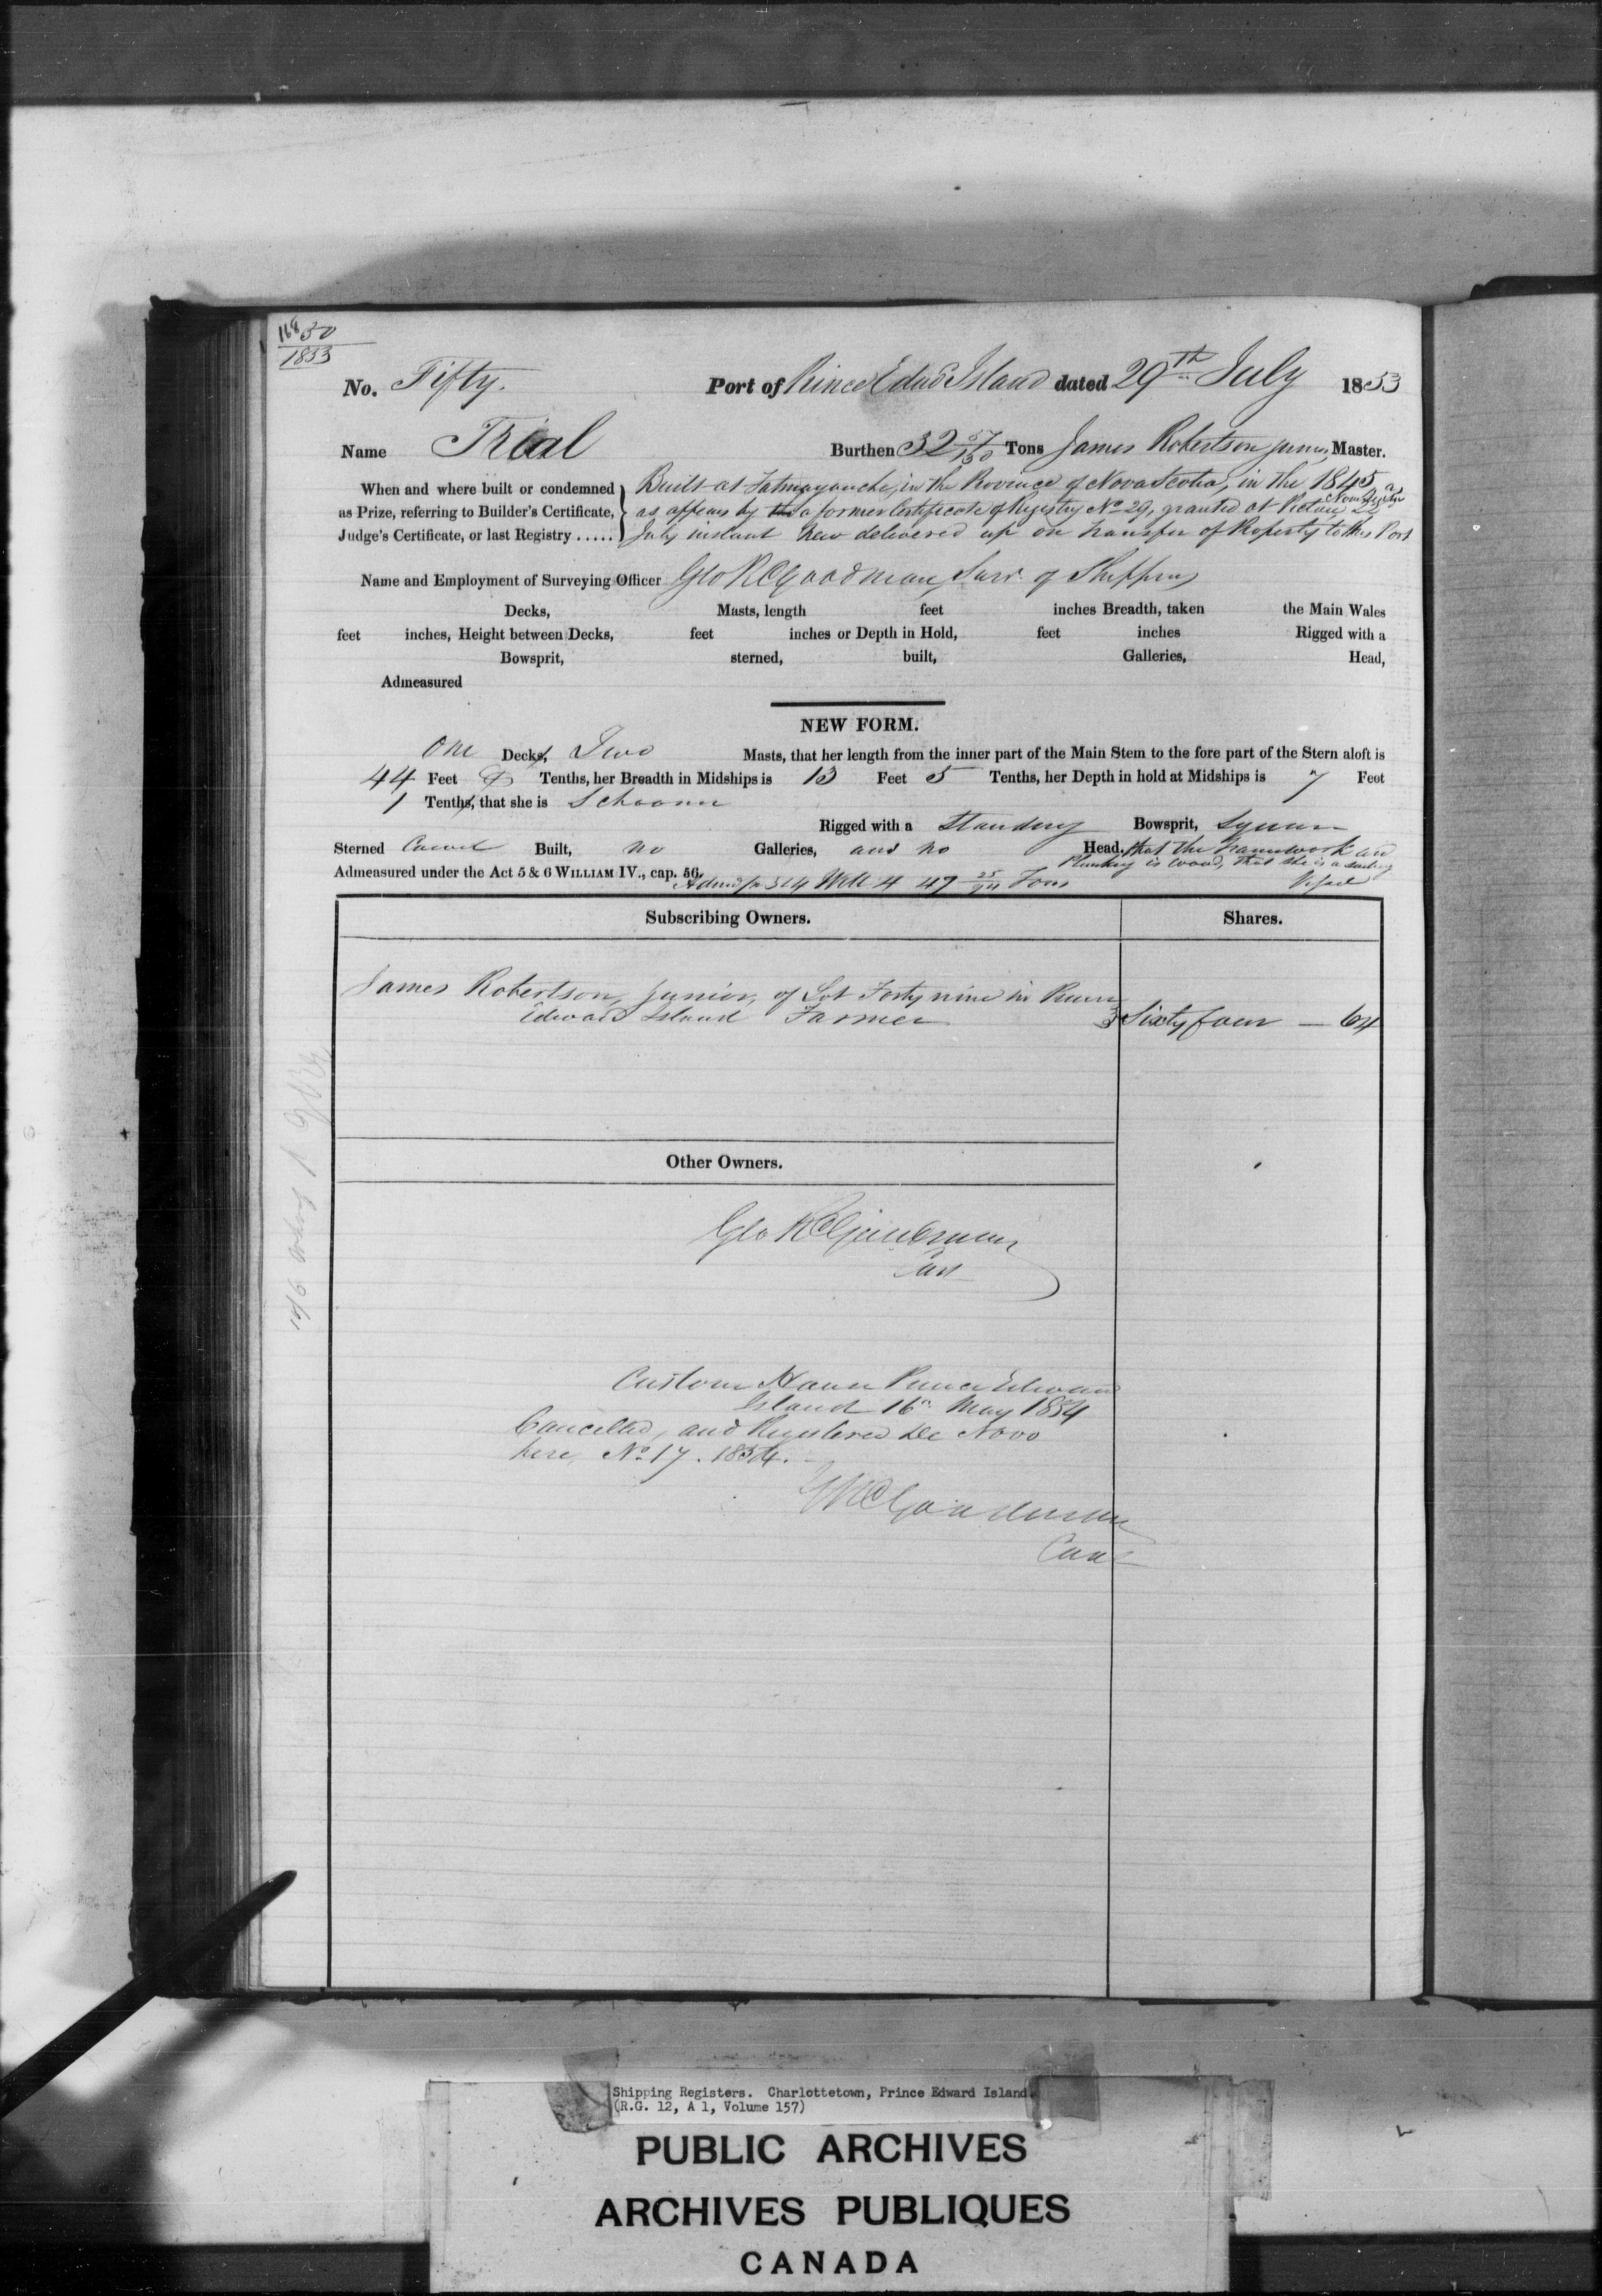 50
1853
No. Fifty. Port of Prince Edwd Island dated 29th July 1853
Name Trial Burthen 32 57/130 Tons James Robertson junior, Master.
When and where built or condemned as Prize, referring to Builder's Certificate, Judge's Certificate, or last Registry .....
Built at Tatmagouche, in the Province of Nova Scotia, in the 1845
as appears by a former Certificate of Registry No 29, granted at Pictou Nova Scotia 22
July instant Now delivered up on transfer of Property to this Port
Name and Employment of Surveying Officer Geo R Goodman, Surv. of Shipping
Decks, Masts, length feet inches Breadth, taken the Main Wales
feet inches, Height between Decks, feet inches or Depth in Hold, feet inches Rigged with a
Bowsprit, sterned, built, Galleries, Head,
Admeasured
NEW FORM.
One Decks, Two Masts, that her length from the inner part of the Main Stem to the fore part of the Stern aloft is
44 Feet Tenths, her Breadth in Midships is 13 Feet 5 Tenths, her Depth in hold at Midships is 7 Feet
1 Tenths, that she is Schooner
Rigged with a Standing Bowsprit, Square
Sterned Carvel Built, no Galleries, and no Head, that the framework and
planking is wood, that she is a sailing
Vessel
Admeasured under the Act 5 & 6 WILLIAM IV., cap. 56. 3 & 4 Will 4 47 25/94 Tons
Subscribing Owners. Shares.
James Robertson, junior, of Lot Forty nine in Prince
Edward Island Farmer } Sixty four — 64
Other Owners.
Geo R Goodman
Custom House Prince Edward
Island 16th May 1854
Cancelled, and Registered De Novo
here, No 17. 1854.
GR Goodman
Shipping Registers. Charlottetown, Prince Edward Island.
(R.G. 12, A 1, Volume 157)
PUBLIC ARCHIVES
ARCHIVES PUBLIQUES
CANADA